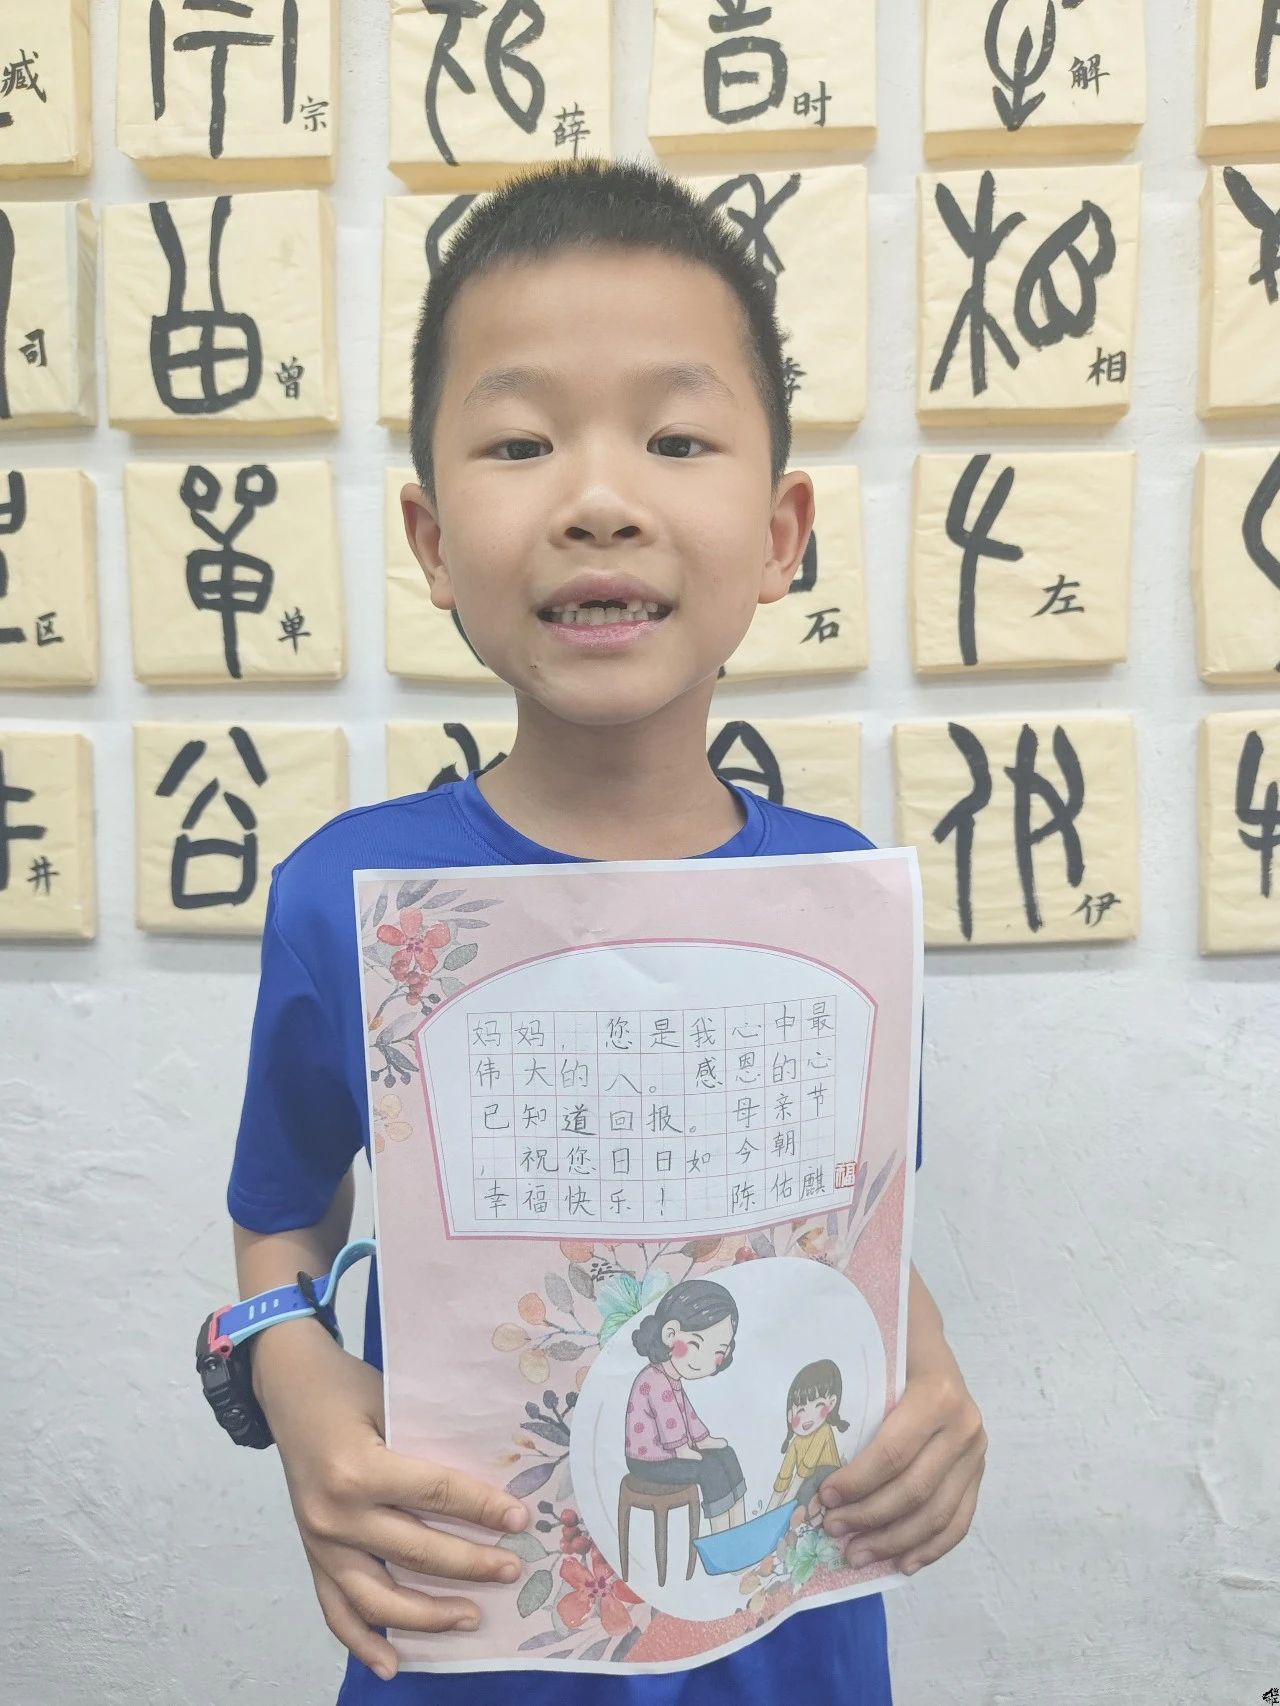 臧
宗
薛
时
解
司
曾
季
相
区
单
石
左
井
谷
伊
妈妈，您是我心中最
伟大的人。感恩的心
已知道回报。母亲节
，祝您日日如今朝
幸福快乐！陈佑麒
福